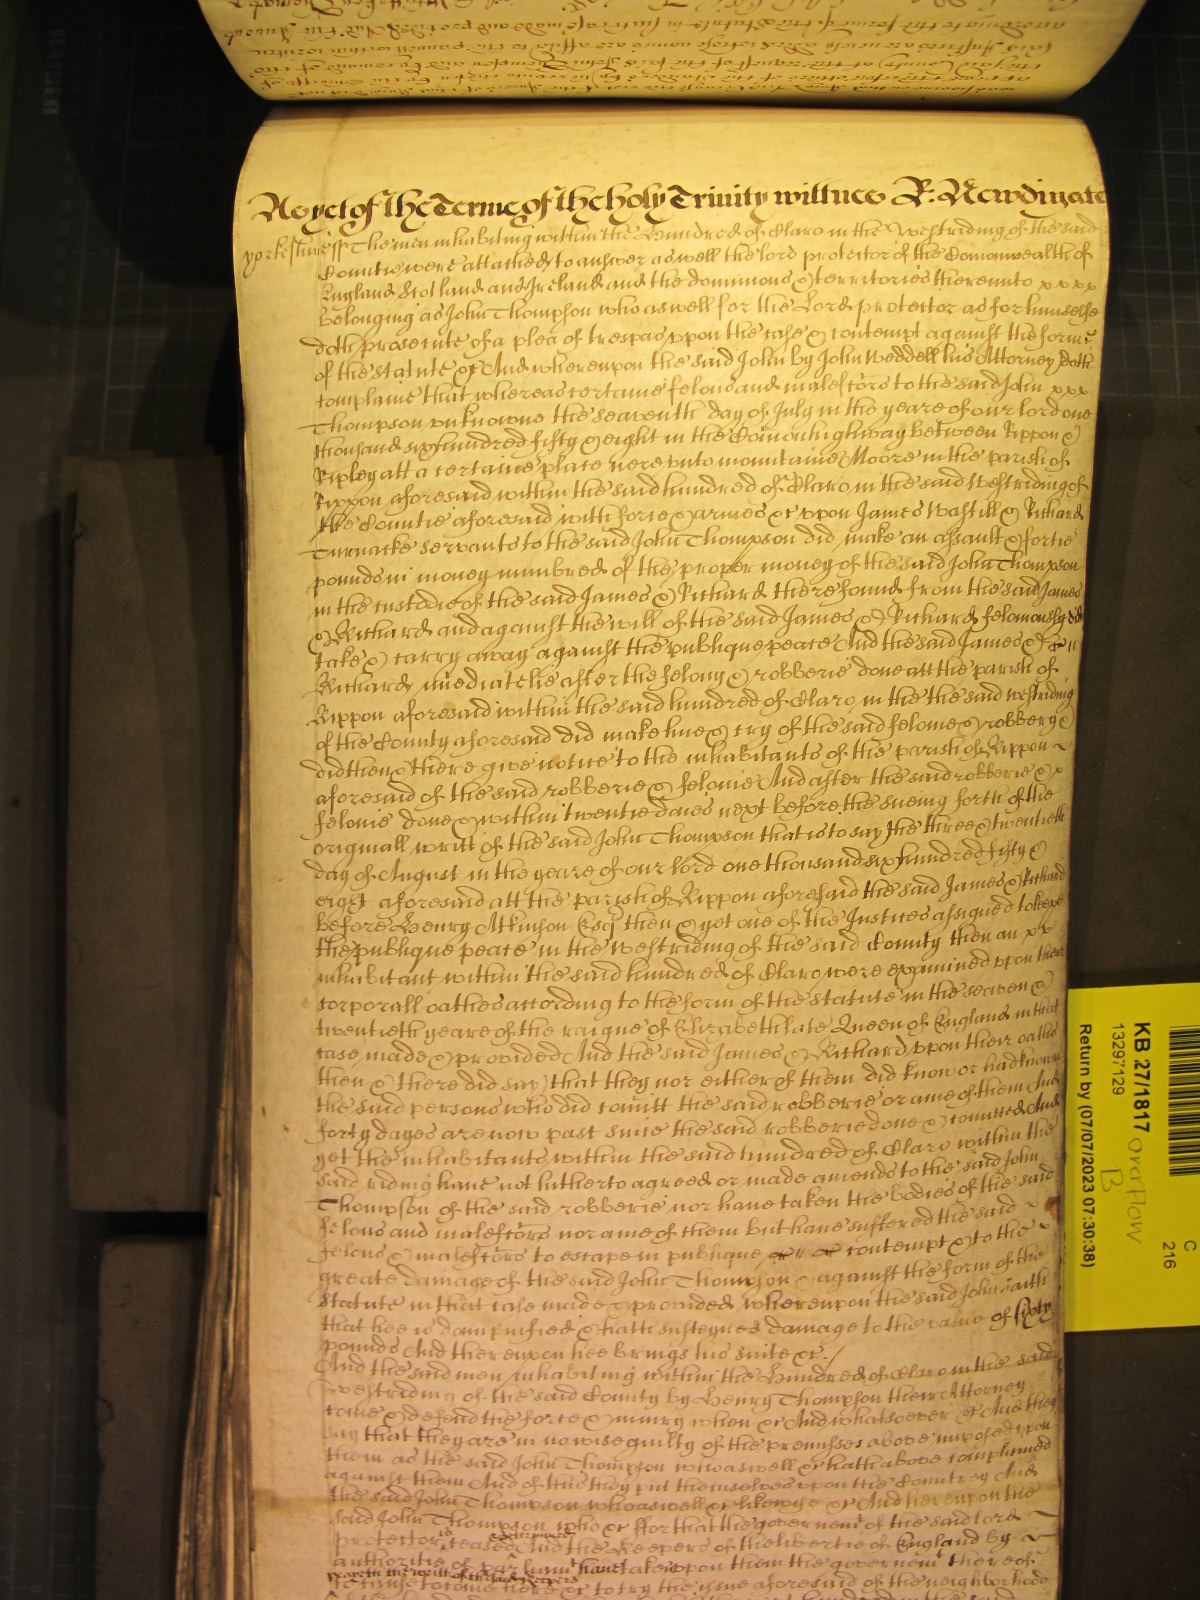 As yet of the Terme of the holy Trinity witnes R: Newdigate
yorkeshire ss The men inhabiting within the Hundred of Claro in the Westriding of the said
Countie were attached to answer aswell the lord protector of the Comonwealth of
England Scotland and Ireland and the dominions & territories thereunto x x x x
belonging as John Thompson who aswell for the Lord protector as for himselfe
doth prosecute of a plea of trespas upon the case & contempt against the forme
of the statute &c And whereupon the said John by John Weddell his Attorney doth
complaine that whereas certaine felons and malefctors to the said John x x x
Thompson unknowne the seaventh day of July in the yeare of our lord one
thousand sixhundred fifty & eight in the Comon highway betweene Rippon &
Ripley att a certaine place nere unto mountaine Moore in the parish of
Rippon aforesaid within the said hundred of Claro in the said Westriding of
the Countie aforesaid with force & armes &c upon James Wastill & Richard
Turnacke servants to the said John Thompson did make an assault & fortie
pounds in money numbred of the proper money of the said John Thompson
in the custodie of the said James & Richard there found from the said James
& Richard and against the will of the said James & Richard feloniously did
take & carry away against the publique peace And the said James &
Richard imediatelie after the felony & robberie done att the parish of
Rippon aforesaid within the said hundred of Claro in the the said westriding
of the County aforesaid did make hue & cry of the said felonie & robbery &
did then & there give notice to the inhabitants of the parish of Rippon
aforesaid of the said robberie & felonie And after the said robberie & x
felonie done & within twentie daies next before the sueing forth of the
originall writt of the said John Thompson that is to say the three & twentieth
day of August in the yeare of our lord one thousand sixhundred fifty &
eight aforesaid att the parish of Rippon aforesaid the said James & Richard
before Henry Atkinson Esq then & yet one of the Justices assigned to keepe
the publique peace in the westriding of the said County then an x x
inhabitant within the said hundred of Claro were examined upon their
corporall oathes according to the form of the statute in the seaven &
twentieth yeare of the raigne of Elizabeth late Queen of England in that
case made & provided And the said James & Richard upon their oathes
then & there did say that they nor either of them did know or had knowne
the said persons who did comitt the said robberie or anie of them And
forty dayes are now past since the said robberie done & comitted And
yet the inhabitants within the said hundred of Claro within the
said riding have not hitherto agreed or made amends to the said John
Thompson of the said robberie nor have taken the bodies of the said
felons and malefctors nor anie of them but have suffered the said
felons & malefctors to escape in publique contempt & to the
greate damage of the said John Thompson & against the form of the
statute in that case made & provided whereupon the said John saith
that hee is dampnified & hath susteyned damage to the value of sixty
pounds And thereupon hee brings his suite &c /
And the said men inhabiting within the Hundred of Claro in the said
westriding of the said County by Henry Thompson their Attorney
come & defend the force & iniury when &c And whatsoever &c And they
say that they are in nowise guilty of the premisses above imposed upon
them as the said John Thompson who aswell &c hath above complained
against them And of this they put themselves upon the Countrey And
the said John Thompson who aswell &c likewise &c And hereupon the
said John Thompson who &c ffor that the governemt of the said lord
protector is ceased And the Keepers of the libertie of England by
authoritie of parliamt have taken upon them the governemt thereof
to come here &c to try the issue aforesaid of the neighborhood
KB 27/1817 overflow
B
13297129
Return by (07/07/2023 07:30:38)
C
216